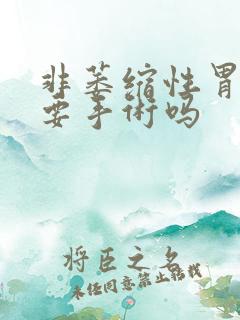 非萎缩性胃
要手术吗
将臣之名
未经同意禁止转载